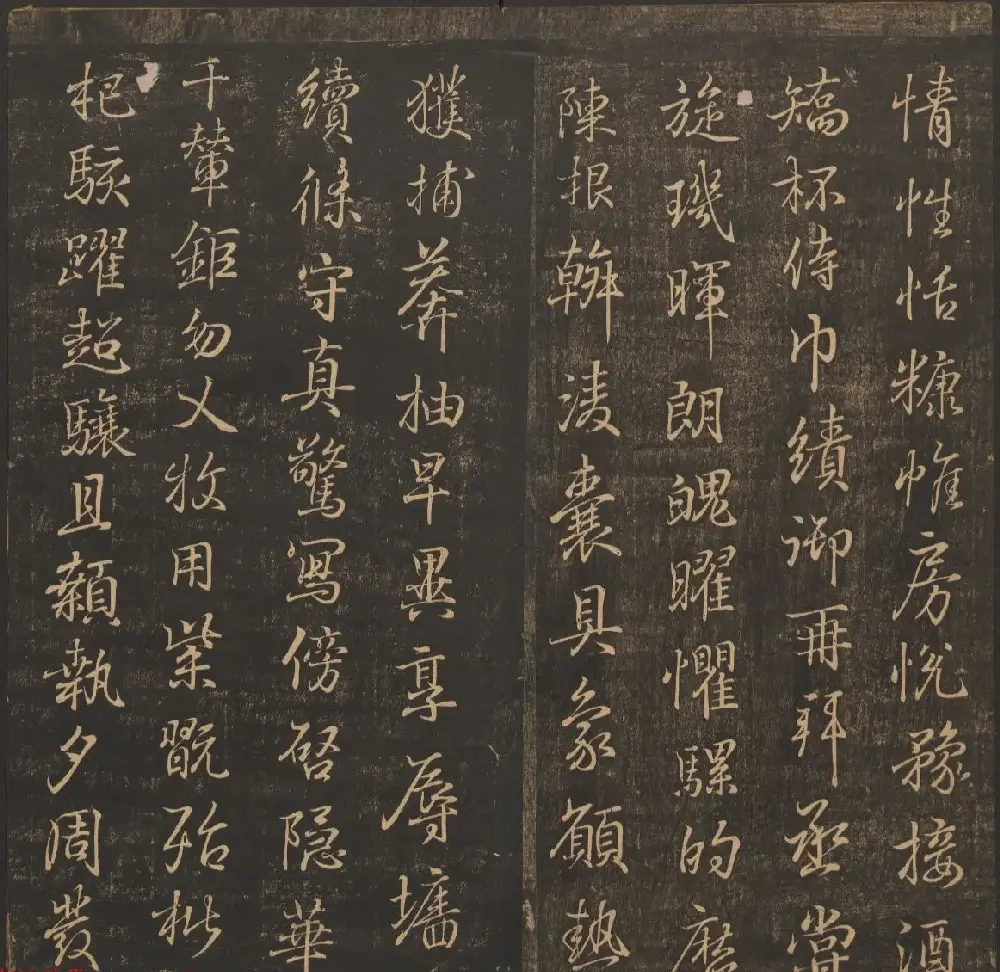 情性恬糠帷房悦豫接酒
矯杯侍巾績御再拜丞當
旋璣暉朗魄曜懼騾的磨
陳根幹淩囊具象顧熱
獲捕莽抽早異享辱墻
續條守真驚寫傍啓隱華
千輦鉅勿乂牧用紫翫殆枇
杷駭躍超驤且顙執夕周發